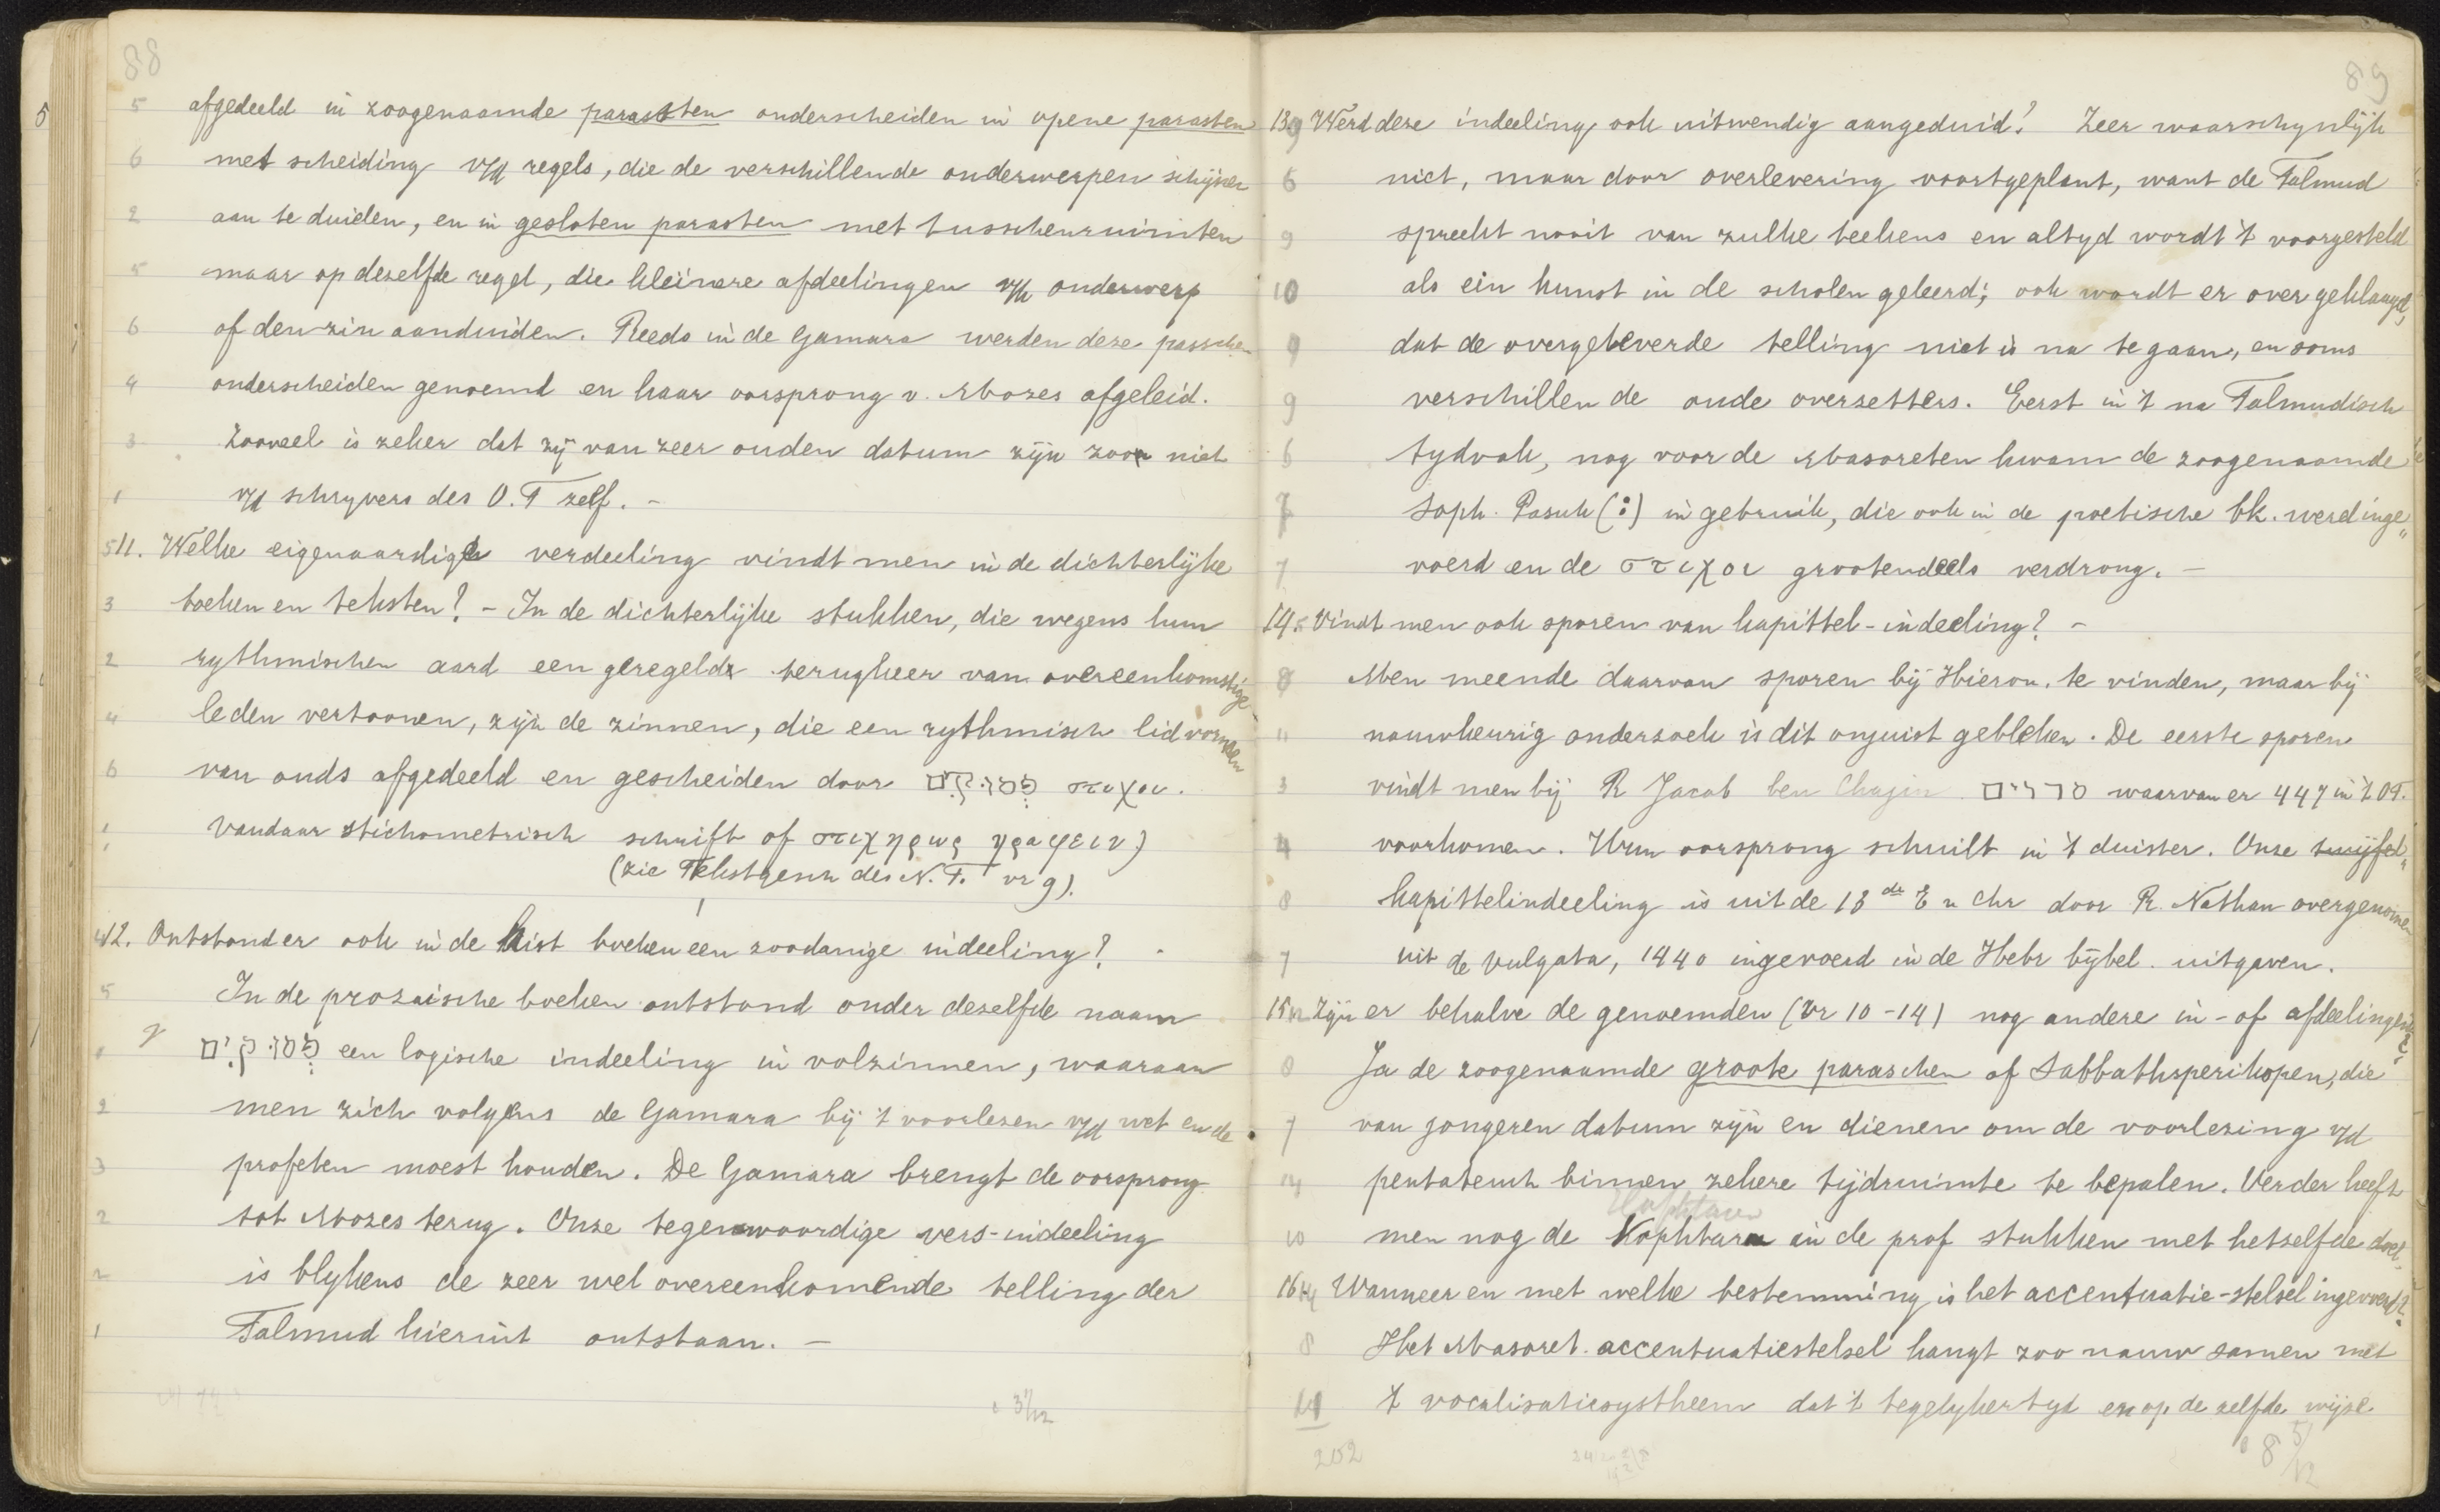 88
afgedeeld in zoogenaamde parasten onderscheiden in opene parasten
met scheiding v/d regels, die de verschillende onderwerpen schijnen
aan te duiden, en in gesloten parasten met tusschenruimten
maar op dezelfde regel, die kleinere afdeelingen v/h onderwerp
of den zin aanduiden. Reeds in de Gamara werden deze passchen
onderscheiden genoemd en haar oorsprong v. Mozes afgeleid.
Zooveel is zeker dat zij van zeer ouden datum zijn zoo niet
v/d schryvers des O.T zelf. -
11. Welke eigenaardige verdeeling vindt men in de dichterlijke
boeken en teksten? - In de dichterlijke stukken, die wegens hun
rythmischen aard een geregelde terugkeer van overeenkomstige
leden vertoonen, zijn de zinnen, die een rythmisch lid vormen
van ouds afgedeeld en gescheiden door פסוקים στιχοι.
Vandaar stichometrisch schrift of στιχηρως γραφειν)
(zie Tekstgesch des N.T. vr 9).
12. Ontstond er ook in de hist boeken een zoodanige indeeling? -
In de prozaische boeken ontstond onder dezelfde naam
פסוקים een logische indeeling in volzinnen, waaraan
men zich volgens de Gamara bij 't voorlezen v/d wet en de
profeten moest houden. De Gamara brengt de oorsprong
tot Mozes terug. Onze tegenwoordige vers-indeeling
is blykens de zeer wel overeenkomende telling der
Talmud hieruit ontstaan. -
3/12
89
13. Werd deze indeeling ook uitwendig aangeduid? Zeer waarschynlijk
niet, maar door overlevering voortgeplant, want de Talmud
spreekt nooit van zulke teekens en altyd wordt 't voorgesteld
als ein kunst in de scholen geleerd; ook wordt er over geklaagd,
dat de overgeleverde telling niet is na te gaan, en soms
verschillen de oude overzetters. Eerst in 't na Talmudisch
tydvak, nog voor de Masoreten kwam de zoogenaamde
Soph. Pasuk (:) in gebruik, die ook in de poetische bk. werd inge„
voerd en de στιχοι grootendeels verdrong. -
14. Vindt men ook sporen van kapittel-indeeling? -
Men meende daarvan sporen bij Hieron. te vinden, maar bij
nauwkeurig onderzoek is dit onjuist gebleken. De eerste sporen
vindt men bij R Jacob ben Chajin סדרים waarvan er 447 in 't OT.
voorkomen. Hun oorsprong schuilt in 't duister. Onze twijfel„
kapittelindeeling is uit de 13de E n Chr door R. Nathan overgenomen
uit de Vulgata, 1440 ingevoerd in de Hebr bijbel. uitgaven.
15. Zijn er behalve de genoemden (Vr 10-14) nog andere in- of afdeelingen?
Ja de zoogenaamde groote paraschen of Sabbathsperikopen, die
van jongeren datum zijn en dienen om de voorlezing v/d
pentateuch binnen zekere tijdruimte te bepalen. Verder heeft
Haphtaren
men nog de Haphtara in de prof stukken met hetzelfde doel.
16. Wanneer en met welke bestemming is het accentuatie-stelsel ingevoerd?
Het Masoret. accentuatiestelsel hangt zoo nauw samen met
't vocalisatiesystheem dat 't tegelykertyd en op de zelfde wijze
252
8 5/12